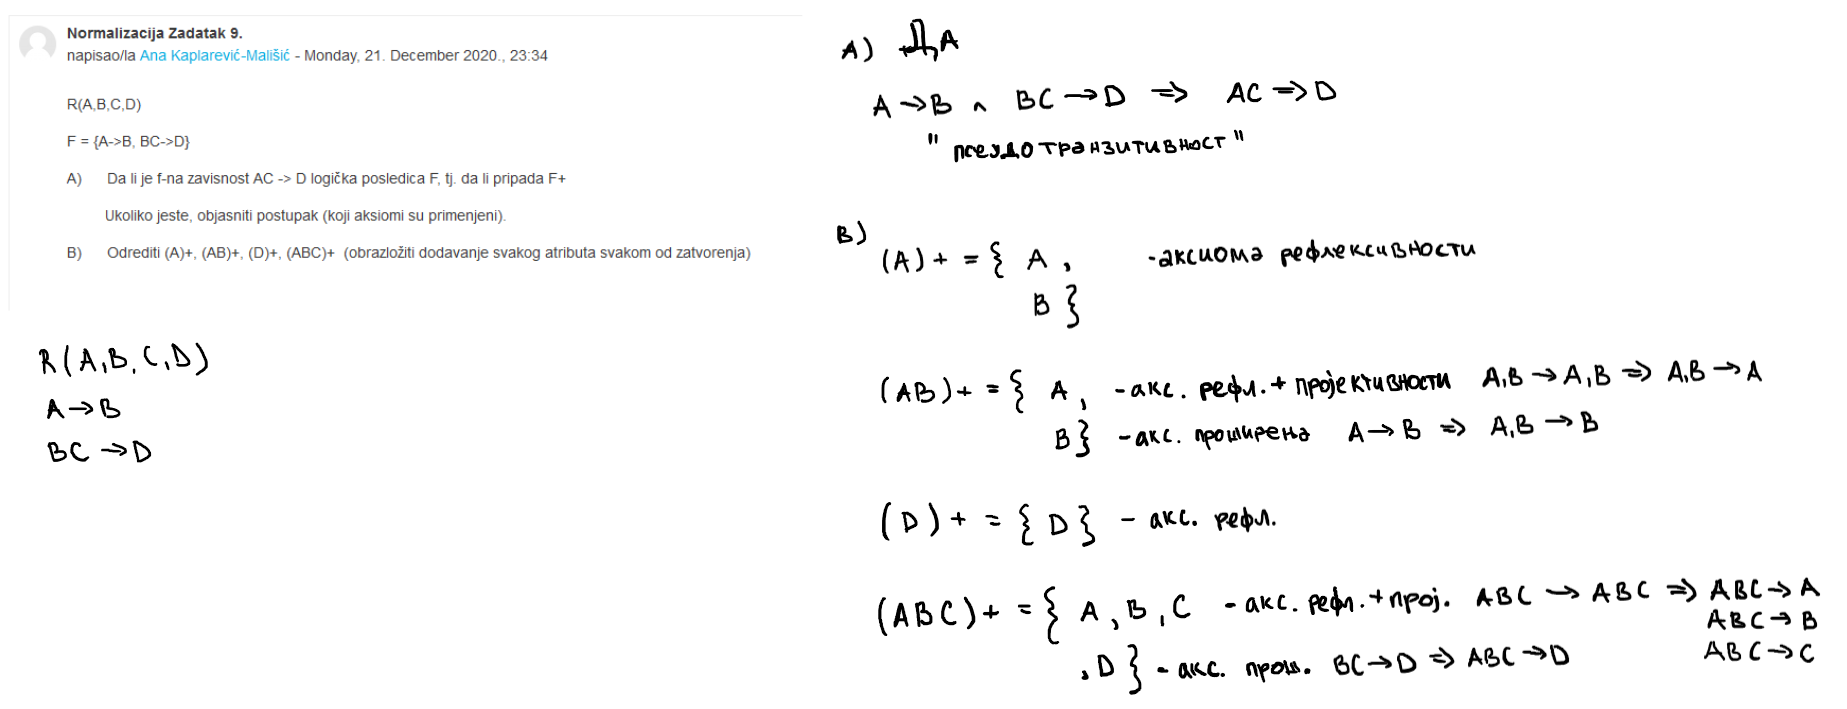 Normalizacija Zadatak 9.
napisao/la Ana Kaplarević-Mališić - Monday, 21. December 2020., 23:34
R(A,B,C,D)
F = {A->B, BC->D}
A) Da li je f-na zavisnost AC -> D logička posledica F, tj. da li pripada F+
Ukoliko jeste, objasniti postupak (koji aksiomi su primenjeni).
B) Odrediti (A)+, (AB)+, (D)+, (ABC)+ (obrazložiti dodavanje svakog atributa svakom od zatvorenja)
R(A,B,C,D)
A→B
BC→D
A) ДА
A→B ∧ BC→D ⇒ AC⇒D
"псеудотранзитивност"
B)
(A)+ = { A, -аксиома рефлексивности
B }
(AB)+ = { A, -акс. рефл.+пројективности A,B→A,B ⇒ A,B→A
B} -акс. проширења A→B ⇒ A,B→B
(D)+ = { D } - акс. рефл.
(ABC)+ = { A, B, C -акс. рефл.+прој. ABC→ABC ⇒ ABC→A
ABC→B
ABC→C
,D } - акс. прош. BC→D ⇒ ABC→D